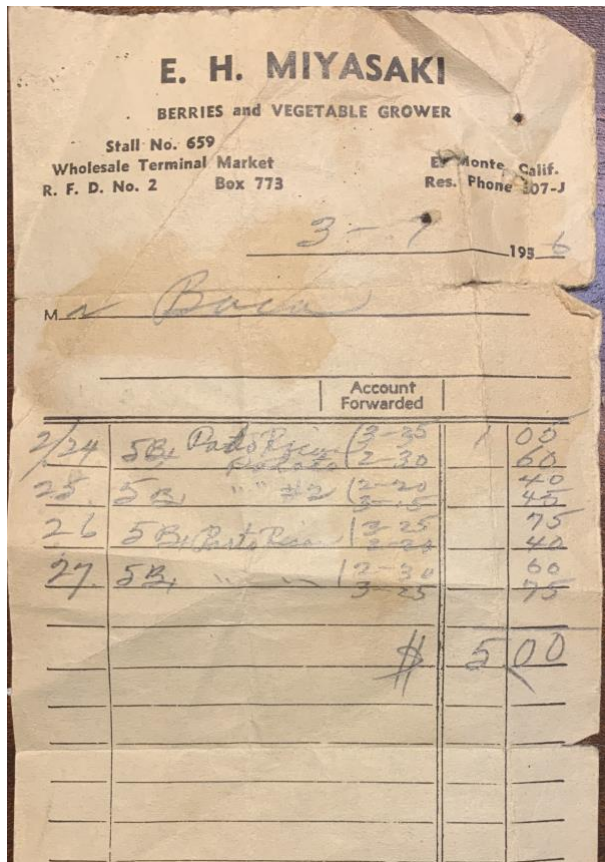 E. H. MIYASAKI
BERRIES and VEGETABLE GROWER
Stall No. 659
Wholesale Terminal Market
R. F. D. No. 2 Box 773
El Monte, Calif.
Res. Phone 307-J
3 - 7 1956
M r Baca
Account
Forwarded
2/24 5 Bx Porto Rican (3-25 1 00
(2-30 60
25. 5 Bx " " #2 (2-20 40
3-15 45
26 5 Bx Porto Rican (3-25 75
2-20 40
27. 5 Bx " " (2-30 60
3-25 75
$ 5 00